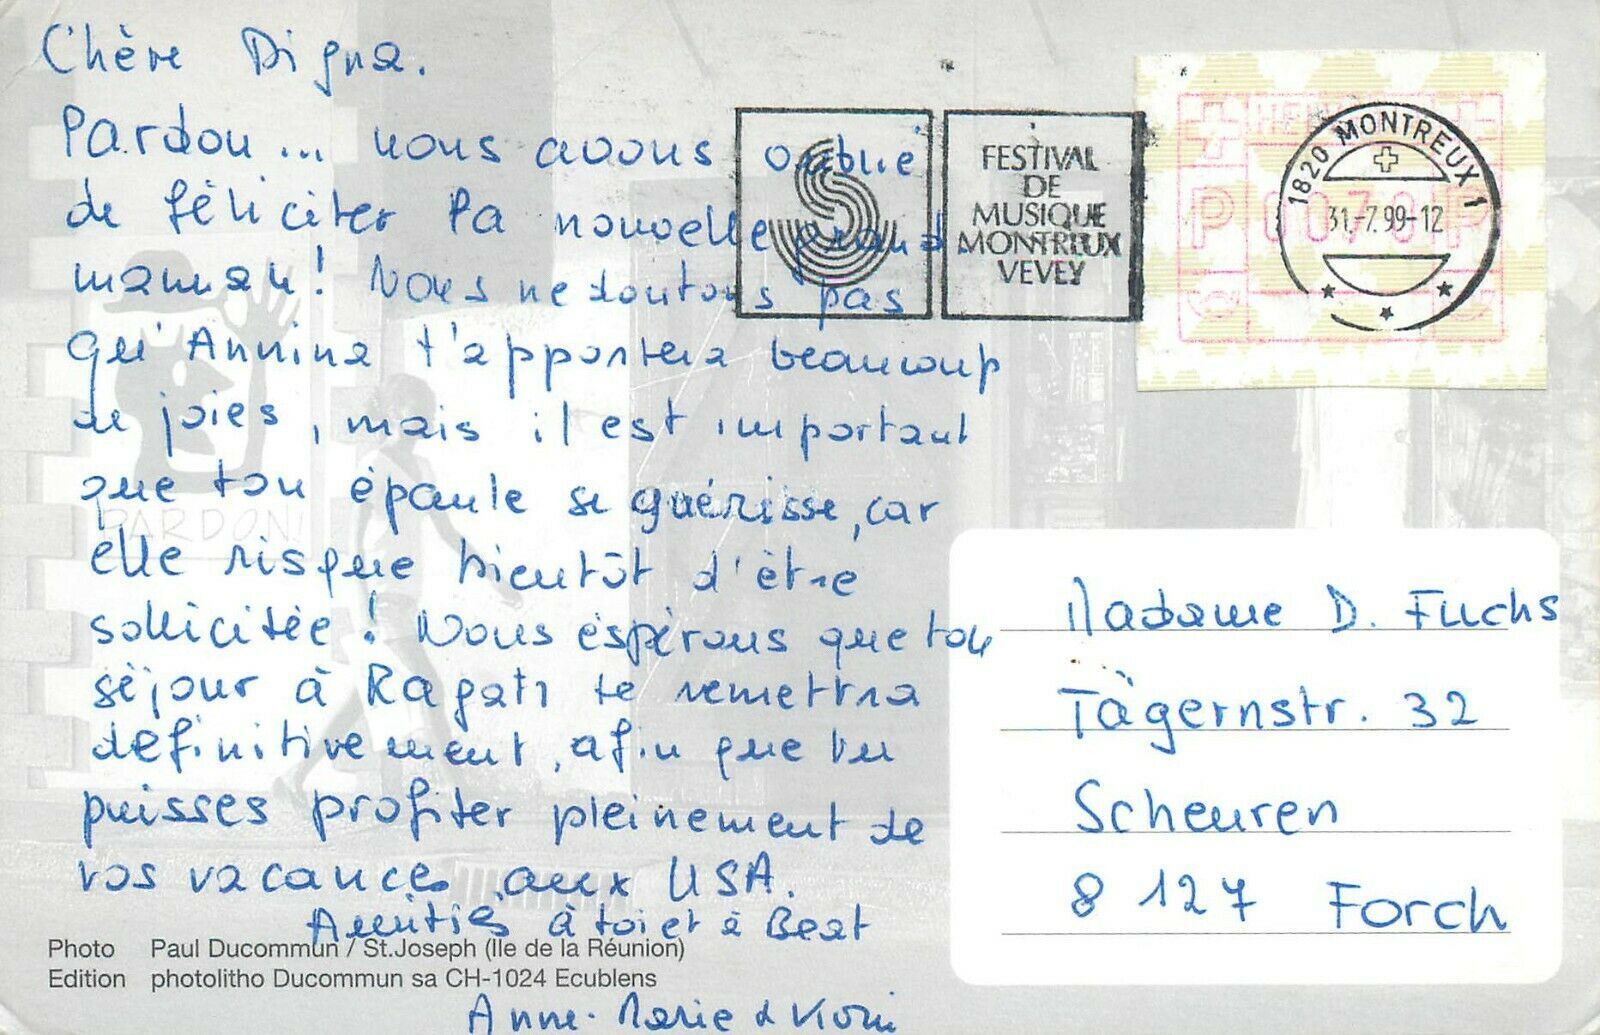 Chère Digna.
Pardon... nous avons oublié
de féliciter la nouvelle grand
maman! Nous ne doutons pas
qu'Annina t'apportera beaucoup
de joies, mais il est important
que ton épaule se guérisse, car
elle risque bientôt d'être
sollicitée! Nous espérons que ton
séjour à Ragatz te remettra
définitivement, afin que tu
puisses profiter pleinement de
vos vacances aux USA.
Amitiés à toi et à Beat
Anne-Marie &
Photo Paul Ducommun / St.Joseph (Ile de la Réunion)
Edition photolitho Ducommun sa CH-1024 Ecublens
PARDON!
FESTIVAL
DE
MUSIQUE
MONTREUX
VEVEY
1820 MONTREUX 1
31.-7.99-12
P 0070 P
Madame D. Fuchs
Tägernstr. 32
Scheuren
8127 Forch